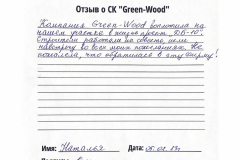 Отзыв о СК "Green-Wood"
Компания Green-Wood воплотила на
нашем участке в жизнь проект ДБ-10".
Строители работали на совесть, шли
навстречу во всех моих пожеланиях. Не
пожалела, что обратилась в эту фирму!
Имя: Наталья Дата: